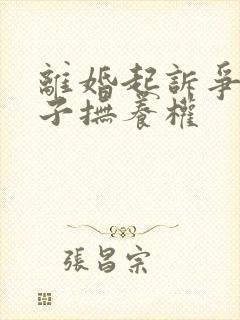 離婚起訴爭
子撫養權
張昌宗